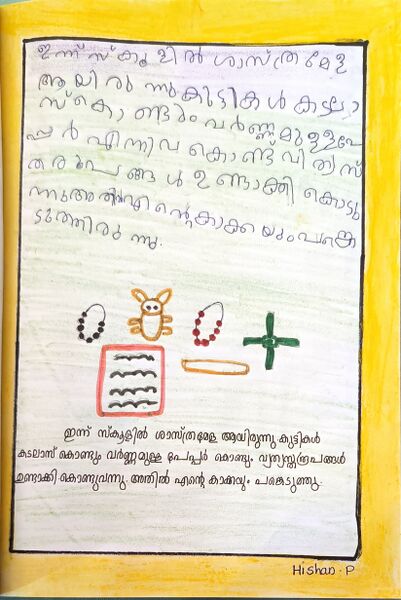 ഇന്ന് സ്കൂളിൽ ശാസ്ത്ര മേള
ആയിരുന്നു കുട്ടികൾ കടലാ
സ് കൊണ്ടും വർണ്ണമുള്ള പേ
പ്പർ എന്നിവ കൊണ്ട് വിത്യസ്
ത രൂപങ്ങൾ ഉണ്ടാക്കി കൊടു
ന്നു അതിൽ എന്റെ കാക്കയും പങ്കെ
ടുത്തിരുന്നു.
ഇന്ന് സ്കൂളിൽ ശാസ്ത്രമേള ആയിരുന്നു. കുട്ടികൾ
കടലാസ് കൊണ്ടും വർണ്ണമുള്ള പേപ്പർ കൊണ്ടും വ്യത്യസ്തരൂപങ്ങൾ
ഉണ്ടാക്കി കൊണ്ടുവന്നു. അതിൽ എന്റെ കാക്കവും പങ്കെടുത്തു.
Hishan. P